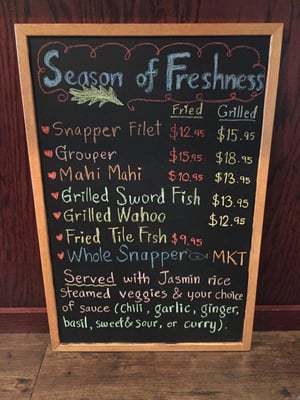 Season of Freshness
Fried Grilled
Snapper Filet $12.95 $15.95
Grouper $15.95 $18.95
Mahi Mahi $10.95 $13.95
Grilled Sword Fish $13.95
Grilled Wahoo $12.95
Fried Tile Fish $9.95
Whole Snapper MKT
Served with Jasmin rice
steamed veggies & your choice
of sauce (chili, garlic, ginger,
basil, sweet & sour, or curry).